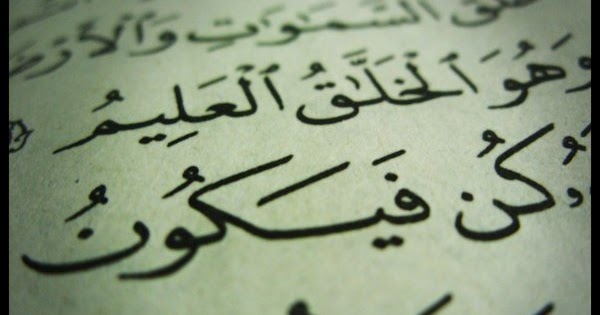 ٱلسَّمَٰوَٰتِ وَٱلْأَرْضَ
وَهُوَ ٱلْخَلَّٰقُ ٱلْعَلِيمُ
كُن فَيَكُونُ